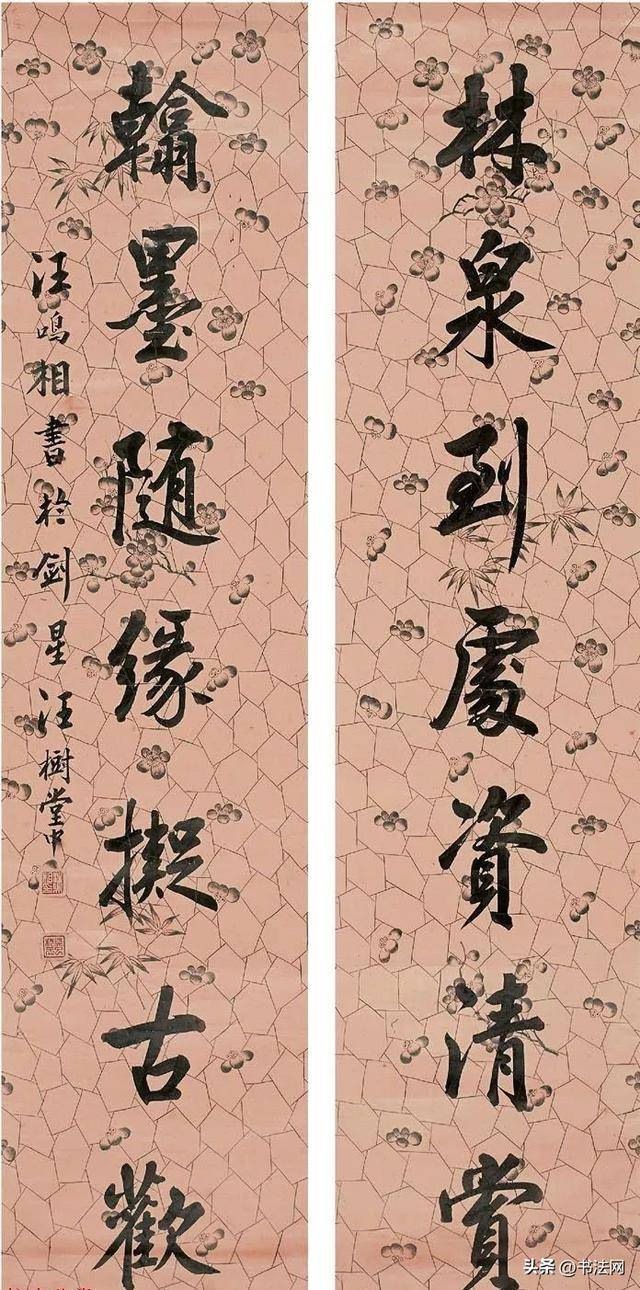 林泉到處資清賞
翰墨隨緣擬古歡
汪鳴相書於劍星汪樹堂中
头条 @书法网